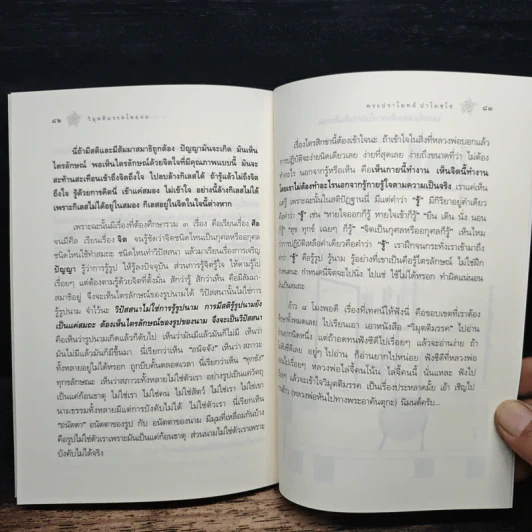 ๘๒ วิมุตติมรรคโดยย่อ
นี้ถ้ามีสติและมีสัมมาสมาธิถูกต้อง ปัญญามันจะเกิด มันเห็น
ไตรลักษณ์ พอเห็นไตรลักษณ์ด้วยจิตใจที่มีคุณภาพแบบนี้ มันจะ
สะท้านสะเทือนเข้าถึงจิตถึงใจ ไปลบล้างกิเลสได้ ถ้ารู้แล้วไม่ถึงจิต
ถึงใจ รู้ด้วยการคิดนี่ เข้าแค่สมอง ไม่เข้าใจ อย่างนี้ล้างกิเลสไม่ได้
เพราะกิเลสไม่ได้อยู่ในสมอง กิเลสอยู่ในจิตในใจนี้ต่างหาก
เพราะฉะนั้นมีเรื่องที่ต้องศึกษารวม ๓ เรื่อง คือเรียนเรื่อง ศีล
จนมีศีล เรียนเรื่อง จิต จนรู้ชัดว่าจิตชนิดไหนเป็นกุศลหรืออกุศล
จิตชนิดไหนใช้ทำสมถะ ชนิดไหนทำวิปัสสนา แล้วมาเรียนเรื่องการเจริญ
ปัญญา รู้ว่าการรู้รูป ให้รู้ลงปัจจุบัน ส่วนการรู้จิตรู้ใจ ให้ตามรู้ไป
เรื่อยๆ แต่ต้องตามรู้ด้วยจิตที่ตั้งมั่น สักว่ารู้ สักว่าเห็น คือมีสัมมา-
สมาธิอยู่ จึงจะเห็นไตรลักษณ์ของรูปนามได้ วิปัสสนานั้นไม่ใช่การดู
รูปนาม จำไว้นะ วิปัสสนาไม่ใช่การดูรูปนาม การมีสติรู้รูปนามยัง
เป็นแค่สมถะ ต้องเห็นไตรลักษณ์ของรูปของนาม จึงจะเป็นวิปัสสนา
คือเห็นว่ารูปนามเกิดแล้วก็ดับไป เห็นว่ามันมีแล้วมันก็ไม่มี เห็นว่า
มันไม่มีแล้วมันก็มีขึ้นมา นี่เรียกว่าเห็น “อนิจจัง” เห็นว่า สภาวะ
ทั้งหลายอยู่ไม่ได้หรอก ถูกบีบคั้นตลอดเวลา นี่เรียกว่าเห็น “ทุกขัง”
ทุกขลักษณะ เห็นว่าสภาวะทั้งหลายไม่ใช่ตัวเรา อย่างรูปเป็นแค่วัตถุ
เป็นแค่ก้อนธาตุ ไม่ใช่เรา ไม่ใช่คน ไม่ใช่สัตว์ ไม่ใช่เรา ไม่ใช่เขา
นามธรรมทั้งหลายมีแต่การบังคับไม่ได้ ไม่ใช่ตัวเรา นี่เรียกว่าเห็น
“อนัตตา” อนัตตาของรูป กับ อนัตตาของนาม มีมุมที่เหลื่อมกันบ้าง
คือรูปไม่ใช่ตัวเราเพราะมันเป็นแค่ก้อนธาตุ ส่วนนามไม่ใช่ตัวเราเพราะ
บังคับไม่ได้จริง
พระปราโมทย์ ปาโมชฺโช ๘๓
เรื่องไตรสิกขานี้ต้องเข้าใจนะ ถ้าเข้าใจในสิ่งที่หลวงพ่อบอกแล้ว
การปฏิบัติจะง่ายนิดเดียวเลย ง่ายที่สุดเลย ง่ายถึงขนาดที่ว่า ไม่ต้อง
ทำอะไร นอกจากรู้หรือเห็น คือ เห็นกายนี้ทำงาน เห็นจิตนี้ทำงาน
โดยเราไม่ต้องทำอะไรนอกจากรู้กายรู้ใจตามความเป็นจริง เราแค่เห็น
เพราะฉะนั้นในสติปัฏฐานนี้ มีแต่คำว่า “รู้” มีกิริยาอยู่คำเดียว
คำว่า “รู้” เช่น “หายใจออกก็รู้ หายใจเข้าก็รู้” “ยืน เดิน นั่ง นอน
ก็รู้” “สุข ทุกข์ เฉยๆ ก็รู้” “จิตเป็นกุศลหรืออกุศล ก็รู้” เห็นไหม
การปฏิบัติเหลือคำเดียวคือคำว่า “รู้” เราฝึกจนกระทั่งเราเข้ามาถึง
คำว่า “รู้” คือรู้รูป รู้นาม รู้อย่างที่เขาเป็นคือรู้ไตรลักษณ์ ไม่ใช่ฝึก
กำหนดนะ กำหนดนี่จิตจะไปนิ่ง ไปแช่ ใช้ไม่ได้หรอก ทำผิดแน่นอน
อ้าว ๘ โมงพอดี เรื่องที่เทศน์ให้ฟังนี่ คือขอบเขตที่เราต้อง
ศึกษาทั้งหมดเลย ไปเรียนเอา เอาหนังสือ “วิมุตติมรรค” ไปอ่าน
อ่านยากนิดหนึ่ง แต่ถ้าอดทนฟังซีดีไปเรื่อยๆ แล้วจะอ่านง่าย ถ้า
ฟังซีดีเลย อยู่ๆ ไปอ่าน ก็อ่านยากไปหน่อย ฟังซีดีที่หลวงพ่อ
ไปเรื่อยๆ หลวงพ่อไล่งี้คนโน้น ไล่งี้คนนี้ นั่นแหละ ฟังไป
ๆ แล้วจะเข้าใจวิมุตติมรรค เป็นเรื่องประหลาดมั้ย เอ้า เชิญไป
ข้าว (หลวงพ่อหันไปทางพระอาคันตุกะ) นิมนต์ครับ...